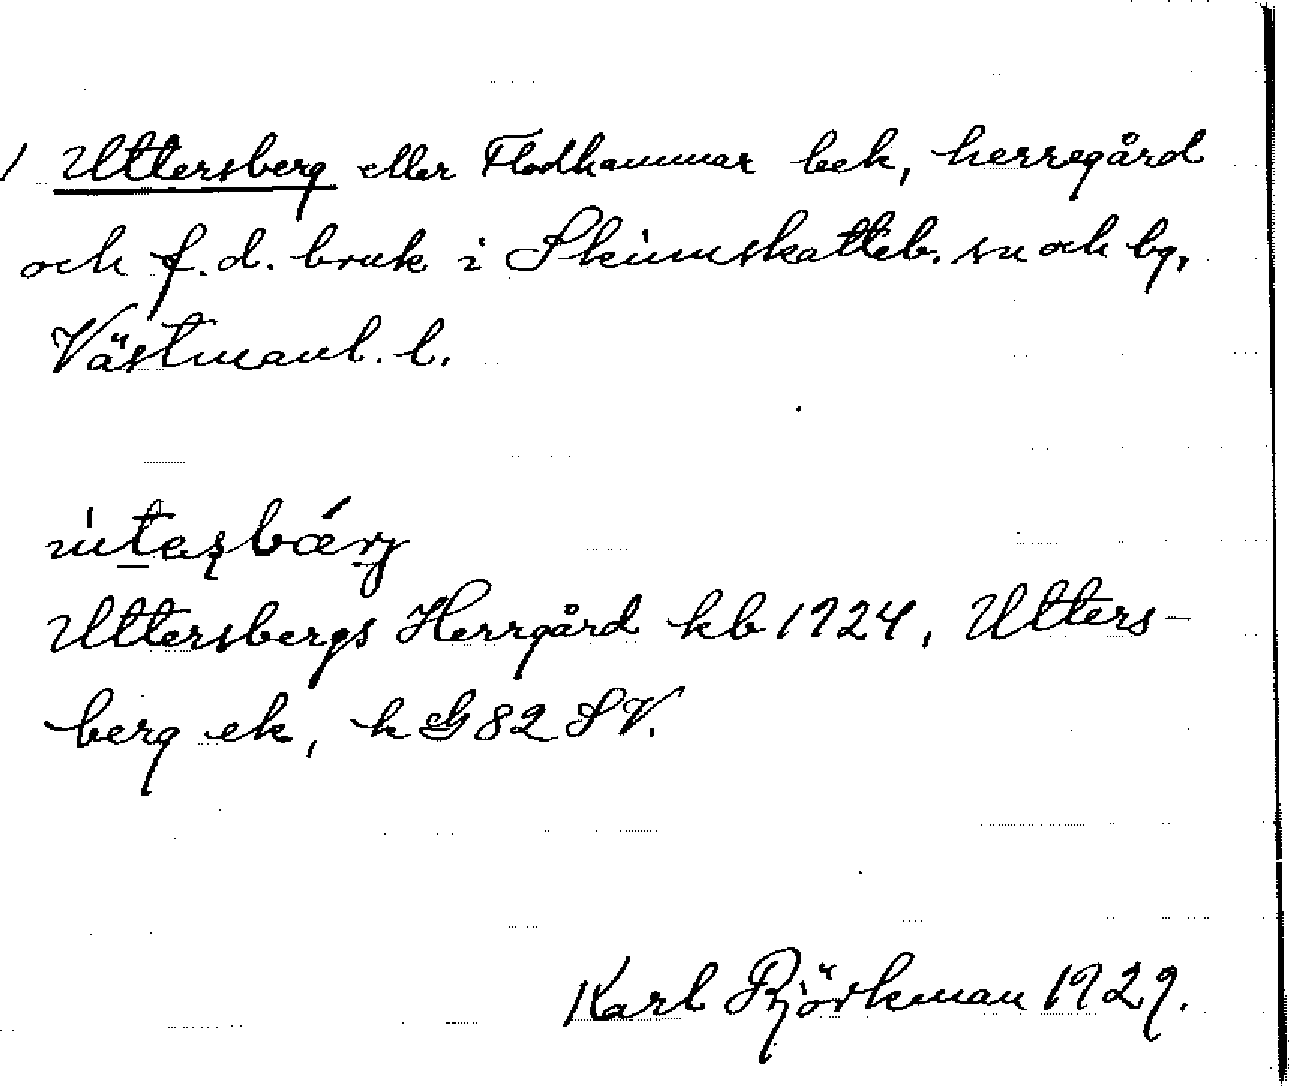 Uttersberg eller Flodhammar bek, herregård
och f.d. bruk i Skinnskatteb. sn och bg,
Västmanl. l.
Uttersbergs Herrgård kb 1924, Utters-
berg ek, k G82 SV.
Karl Björkman 1929.